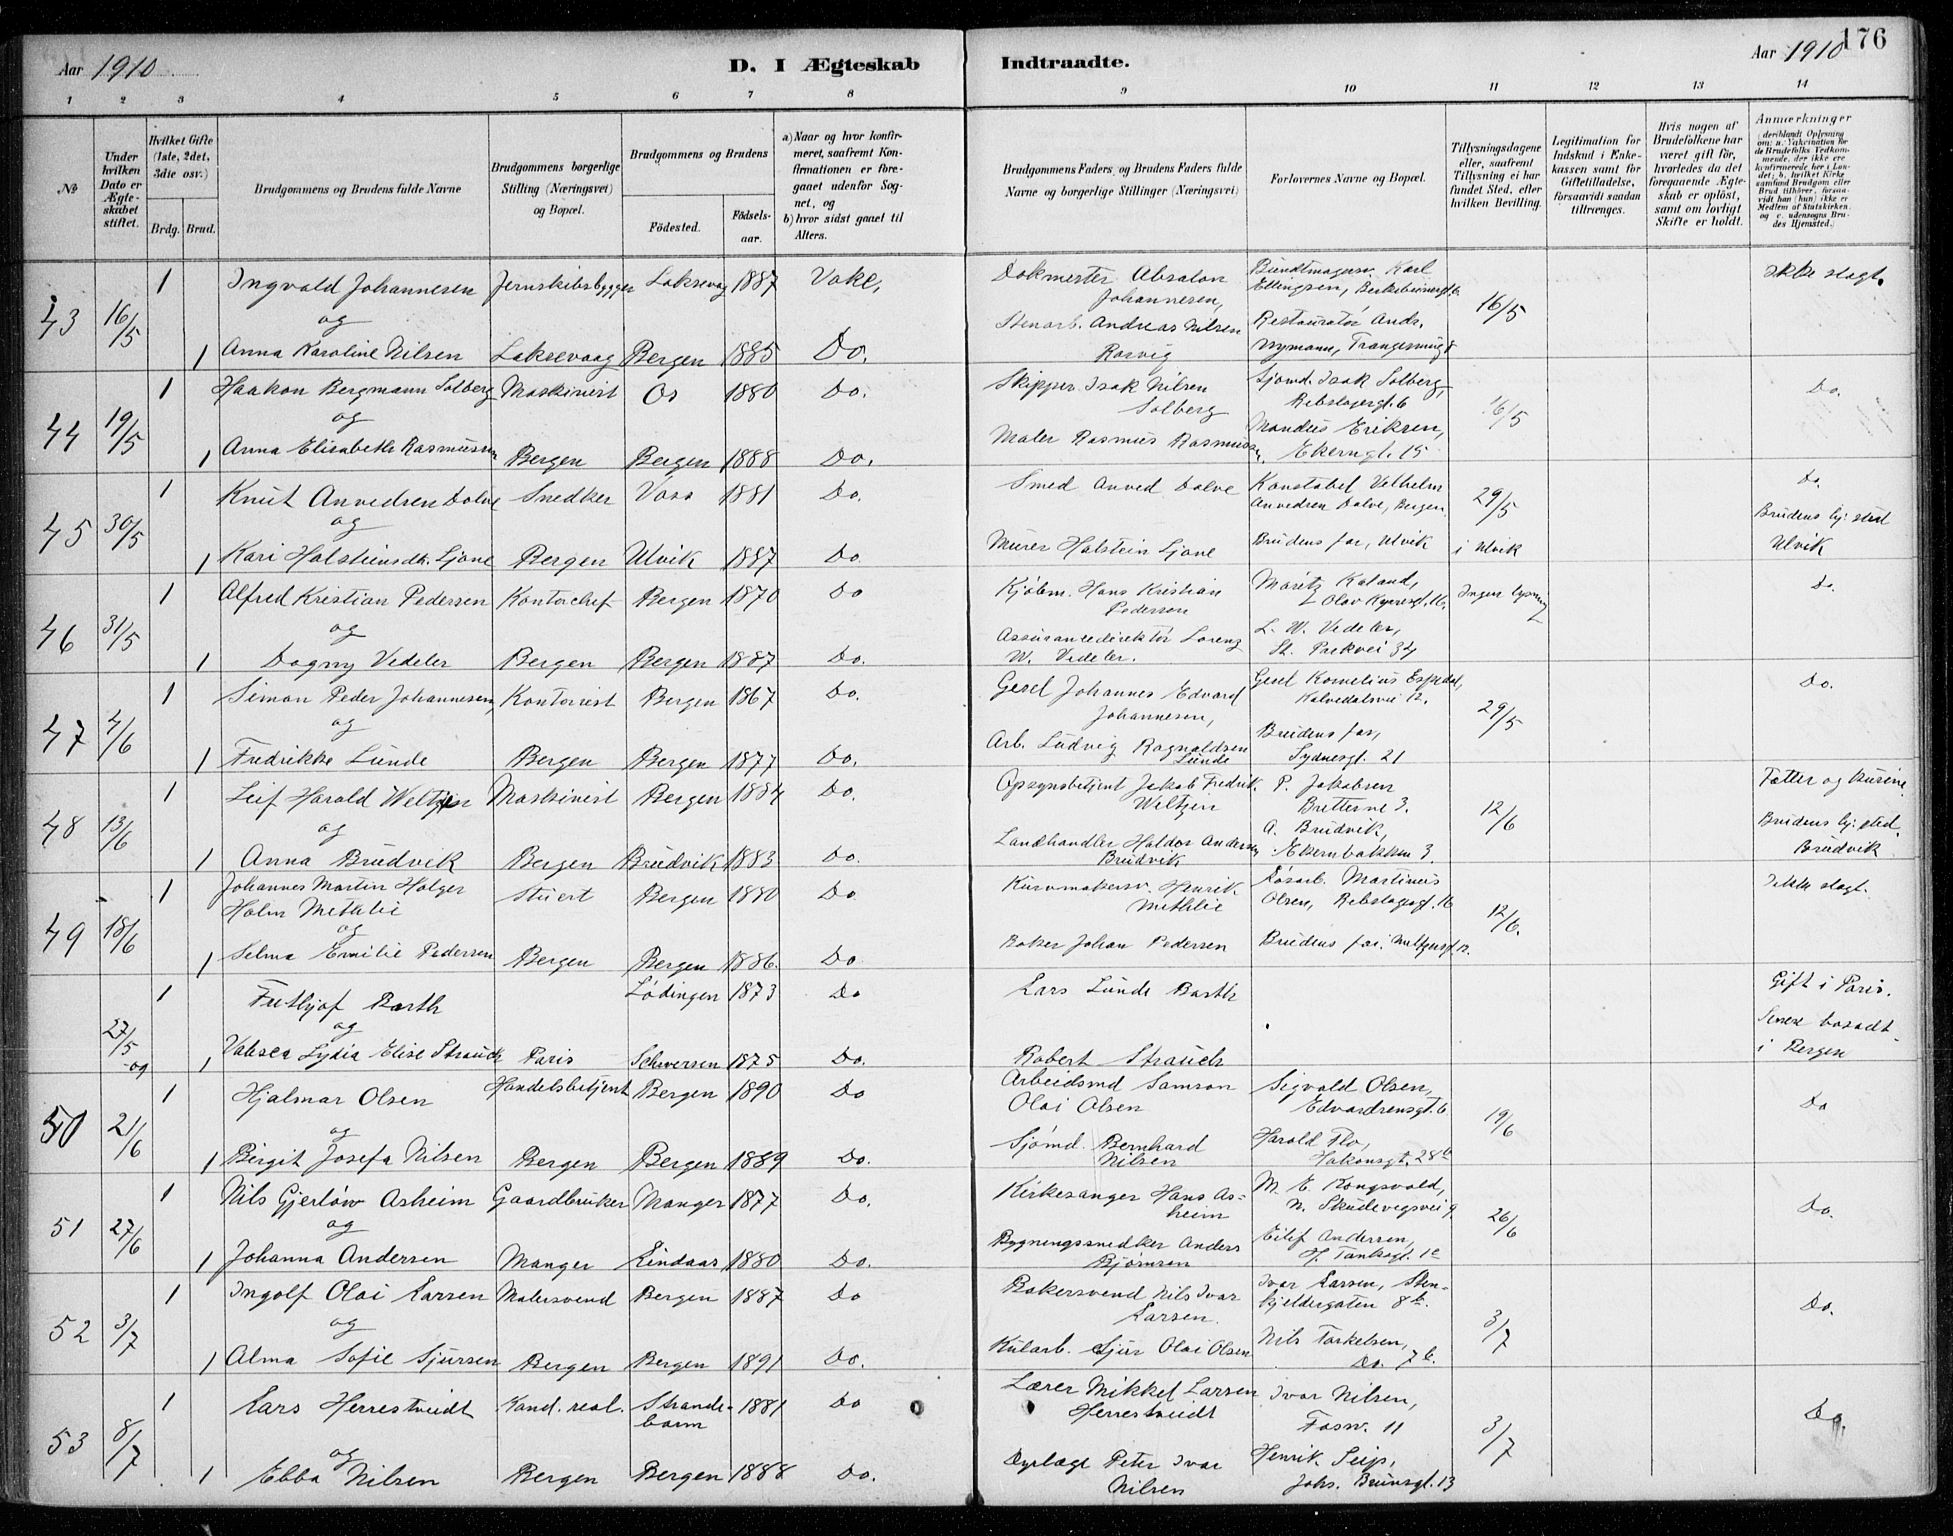 176
Aar 1910
D. I Ægteskab Indtraadte.
Aar 1910
1 2 3 4 5 6 7 8 9 10 11 12 13 14
№
Under hvilken Dato er Ægteskabet stiftet.
Hvilket Gifte (1ste, 2det, 3die osv.)
Brdg. Brud.
Brudgommens og Brudens fulde Navne
Brudgommens borgerlige Stilling (Næringsvei) og Bopæl.
Brudgommens og Brudens
Fødested.
Fødselsaar.
a) Naar og hvor konfirmeret, saafremt Konfirmationen er foregaaet udenfor Sognet, og
b) hvor sidst gaaet til Alters.
Brudgommens Faders og Brudens Faders fulde Navne og borgerlige Stillinger (Næringsvei)
Forlovernes Navne og Bopæl.
Tillysningsdagene eller, saafremt Tillysning ei har fundet Sted, efter hvilken Bevilling.
Legitimation for Indskud i Enkekassen samt for Giftetilladelse, forsaavidt saadan tiltrænges.
Hvis nogen af Brudefolkene har været gift før, hvorledes da det foregaaende Ægteskab er opløst, samt om lovligt Skifte er holdt.
Anmærkninger
43 16/5
1 Ingvald Johannesen Jernskibsbygger Laksevag 1887 Dokmester Absalon Johannesen, Karl Ellingsen, 16/5 Ikke slægt.
og
1 Anna Karoline Nilsen Laksevaag Bergen 1885 Do. Stenarb. Andreas Nilsen Restauratør Andr. Nymann,
44 19/5
1 Haakon Bergmann Solberg Maskinist Os 1880 Do. Skipper Isak Nilsen Solberg Sjømd. Isak Solberg, Rebslagergt. 6 16/5 Do.
og
1 Anna Elisabeth Rasmussen Bergen Bergen 1888 Do. Maler Rasmus Rasmussen Mandius Eriksen, Ekerngt. 15
45 30/5
1 Knut Anvedsen Dolve Snedker Voss 1881 Do. Smed Anved Dolve Konstabel Vilhelm Anvedsen Dolve, Bergen 29/5 Do.
og
1 Kari Halsteinsdtr. Ljone Bergen Ulvik 1887 Do. Murer Halstein Ljone Brudens far, Ulvik i Ulvik Brudens hj. sted Ulvik
46 31/5
1 Alfred Kristian Pedersen Kontorchef Bergen 1870 Do Kjøbm. Hans Kristian Pedersen Moritz Kaland, Olav Kyrresgt. 16. Ingen lysning Do.
og
1 Dagny Vedeler Bergen Bergen 1887 Do. Assurancedirektør Lorenz W. Vedeler. L. W. Vedeler, St. Parkvei 34
47 4/6
1 Simon Peder Johannesen Kontorist Bergen 1867 Do. Gesel Johannes Edvard Johannesen, Gesel Kornelius Espedal, Kalvedalsvei 12. 29/5 Do.
og
1 Fredrikke Lunde Bergen Bergen 1877 Do. Arb. Ludvig Ragnaldsen Lunde Brudens far, Sydnesgt. 21
48 13/6
1 Leif Harald Weltzin Maskinist Bergen 1884 Do. Opsynsbetjent Jakob Fredrik Weltzen P. Jakobsen Bretterne 3. 12/6 Fætter og kusine
og
1 Anna Brudvik Bergen Brudvik 1883 Do. Landhandler Haldor Andersen Brudvik A. Brudvik, Ekernbakken 3. Brudens hj. sted. Brudvik
49 18/6
1 Johannes Martin Holger Holm Methlie Stuert Bergen 1880 Do Kurvmakersv. Henrik Methlie Løsarb. Martinius Olsen, Rebslagergt. 16 12/6. Ikke slægt.
og
1 Selma Emilie Pedersen Bergen Bergen 1886. Do Baker Johan Pedersen Brudens far,
27/5
1 Frithjof Barth Lødingen 1873 Do Lars Lunde Barth Gift i Paris.
og
1 Valesca Lydia Elise Strauch Paris 1875 Do. Robert Strauch Senere bosadt i Bergen
og
50 21/6
1 Hjalmar Olsen Handelsbetjent Bergen 1890 Do Arbeidsmd Samson Olai Olsen Sigvald Olsen, Edvardsensgt. 6 19/6 Do
og
1 Birgit Josefa Nilsen Bergen Bergen 1889 Do. Sjømd. Bernhard Nilsen Harald Flo, Hakonsgt. 28b
51 27/6
1 Nils Gjerløw Asheim Gaardbruker Manger 1877 Do. Kirkesanger Hans Asheim M. E. Kongsvold, N. Skudevigsvei 9 26/6 Do.
og
1 Johanna Andersen Manger Lindaas 1880 Do. Bygningssnedker Anders Bjørnsen Eilif Andersen, H. Tanksgt. 1c
52 3/7
1 Ingolf Olai Larsen Malersvend Bergen 1887 Do Bakersvend Nils Ivar Larsen. Ivar Larsen, Stenkjeldergaten 8b. 3/7 Do.
og
1 Alma Sofie Sjursen Bergen Bergen 1891 Do. Kularb. Sjur Olai Olsen Nils Torkelsen, Do. 7b.
53 8/7
1 Lars Herrestveidt Kand. real. Strandebarm 1881 Do Lærer Mikkel Larsen Herrestveidt Ivar Nilsen, Fosw. 11 3/7 Do.
og
1 Ebba Nilsen Bergen Bergen 1888 Do. Dyrlæge Peter Ivar Nilsen Henrik Seip, Johs. Brunsgt. 13